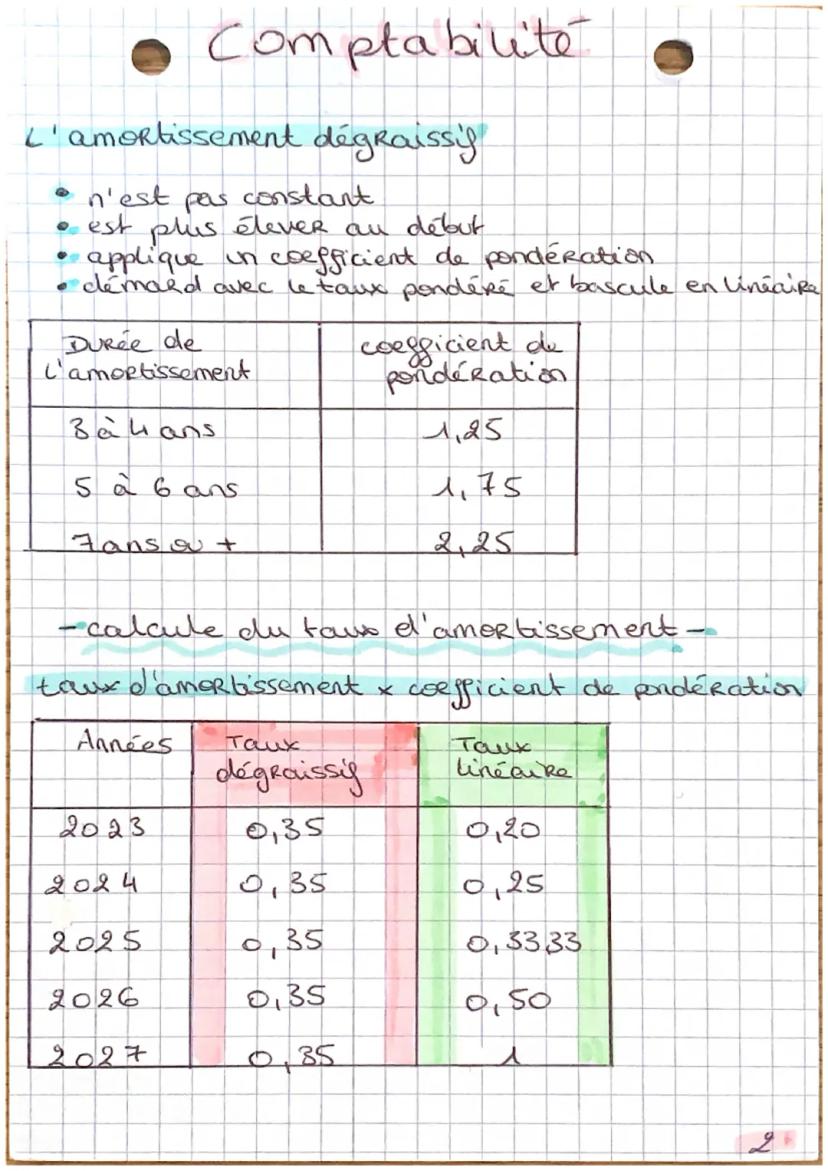 Comptabilité
L'amortissement dégraissif
• n'est pas constant
• est plus élever au début
• applique un coefficient de pondération
• démard avec le taux pondéré et bascule en linéaire
Durée de coefficient de
L'amortissement pondération
3 à 4 ans 1,25
5 à 6 ans 1,75
7 ans ou + 2,25
- calcule du taux d'amortissement -
taux d'amortissement x coefficient de pondération
Années Taux Taux
dégraissif linéaire
2023 0,35 0,20
2024 0,35 0,25
2025 0,35 0,3333
2026 0,35 0,50
2027 0,35 1
2